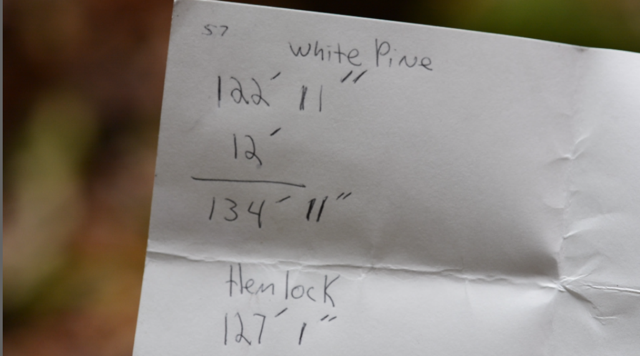 57
White Pine
122' 11"
12'
134' 11"
Hemlock
127' 1"